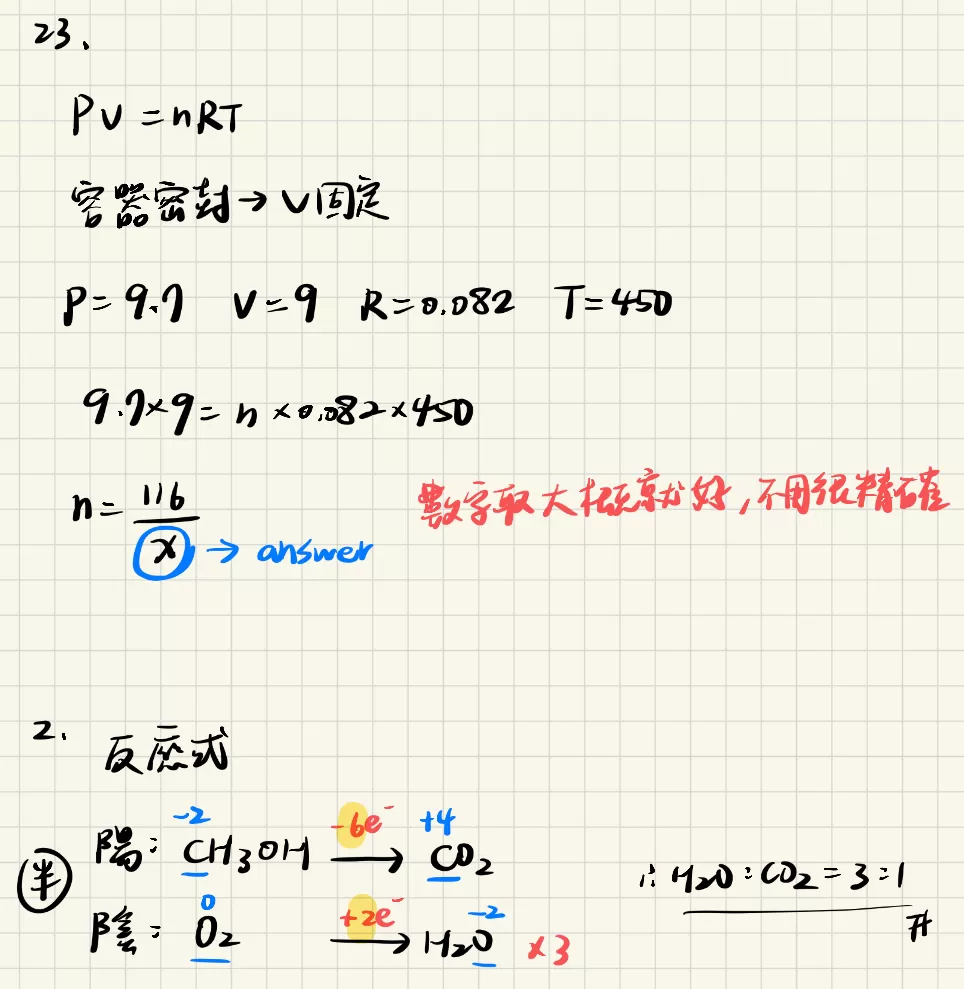 23、
PV=nRT
容器密封→V固定
P=9.7 V=9 R=0.082 T=450
9.7×9=n×0.082×450
n=116/x → answer
數字取大概就好,不用很精確
2.
反應式
半
陽: CH3OH -6e⁻→ CO2
-2 +4
陰: O2 +2e⁻→ H2O ×3
0 -2
∴H2O:CO2=3:1